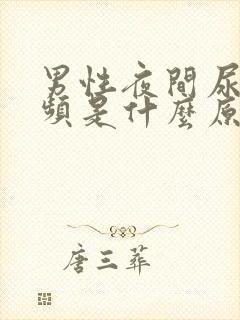 男性夜間尿
頻是什麼原
唐三葬